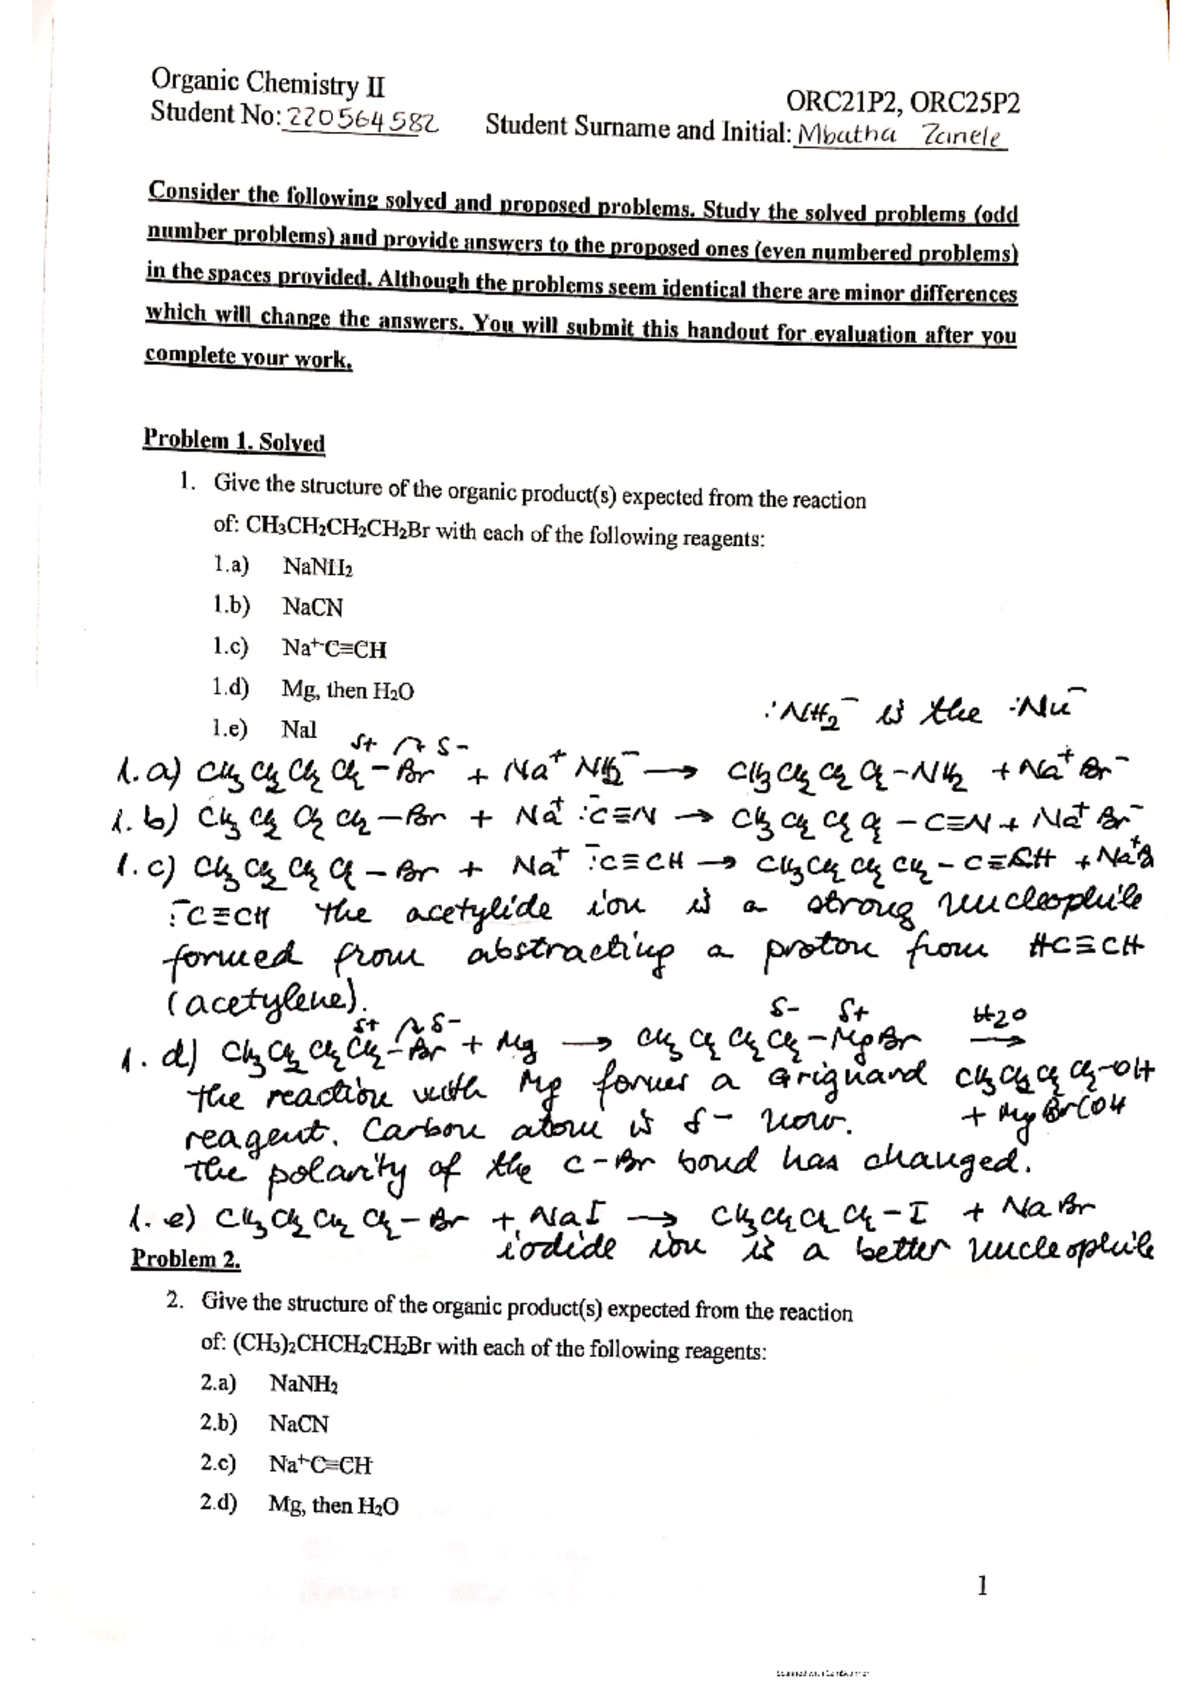 Organic Chemistry II
ORC21P2, ORC25P2
Student No: 220564582 Student Surname and Initial: Mbatha Zanele
Consider the following solved and proposed problems. Study the solved problems (odd
number problems) and provide answers to the proposed ones (even numbered problems)
in the spaces provided. Although the problems seem identical there are minor differences
which will change the answers. You will submit this handout for evaluation after you
complete your work.
Problem 1. Solved
1. Give the structure of the organic product(s) expected from the reaction
of: CH₃CH₂CH₂CH₂Br with each of the following reagents:
1.a) NaNH₂
1.b) NaCN
1.c) Na⁺⁻C≡CH
1.d) Mg, then H₂O
:NH₂⁻ is the :Nu⁻
1.e) NaI
δ+ δ-
1.a) CH₃CH₂CH₂CH₂-Br + Na⁺NH₂⁻ → CH₃CH₂CH₂CH₂-NH₂ + Na⁺Br⁻
1.b) CH₃CH₂CH₂CH₂-Br + Na⁺ :⁻C≡N → CH₃CH₂CH₂CH₂-C≡N + Na⁺Br⁻
1.c) CH₃CH₂CH₂CH₂-Br + Na⁺ :⁻C≡CH → CH₃CH₂CH₂CH₂-C≡CH + Na⁺B
:⁻C≡CH the acetylide ion is a strong nucleophile
formed from abstracting a proton from HC≡CH
(acetylene).
δ+ δ- δ- δ+ H₂O
1.d) CH₃CH₂CH₂CH₂-Br + Mg → CH₃CH₂CH₂CH₂-MgBr →
the reaction with Mg forms a Grignard CH₃CH₂CH₂CH₂-OH
reagent. Carbon atom is δ- now. + MgBr(OH
The polarity of the C-Br bond has changed.
1.e) CH₃CH₂CH₂CH₂-Br + NaI → CH₃CH₂CH₂CH₂-I + NaBr
iodide ion is a better nucleophile
Problem 2.
2. Give the structure of the organic product(s) expected from the reaction
of: (CH₃)₂CHCH₂CH₂Br with each of the following reagents:
2.a) NaNH₂
2.b) NaCN
2.c) Na⁺⁻C≡CH
2.d) Mg, then H₂O
1